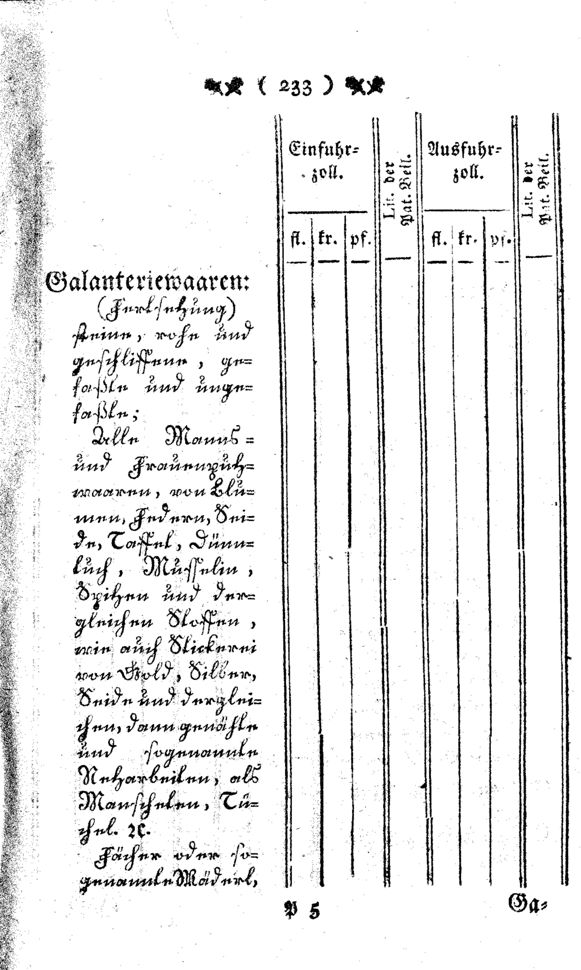 ( 233 )
Einfuhr⸗
zoll.
Lit. der
Pat. Beil.
Ausfuhr⸗
zoll.
Lit. der
Pat. Beil.
fl. kr. pf. fl. kr. pf.
Galanteriewaaren:
(Fortsetzung)
steine, rohe und
geschliffene, ge⸗
faßte und unge⸗
faßte;
Alle Manns⸗
und Frauenputz⸗
waaren, von Blu⸗
men, Federn, Sei⸗
de, Taffet, Dünn⸗
tuch, Musselin,
Spitzen und der⸗
gleichen Stoffen,
wie auch Stickerei
von Gold, Silber,
Seide und derglei⸗
chen, dann genähte
und sogenannte
Netzarbeiten, als
Manscheten, Tü⸗
chel. ꝛc.
Fächer oder so⸗
genannte Waderl,
P 5
Ga⸗